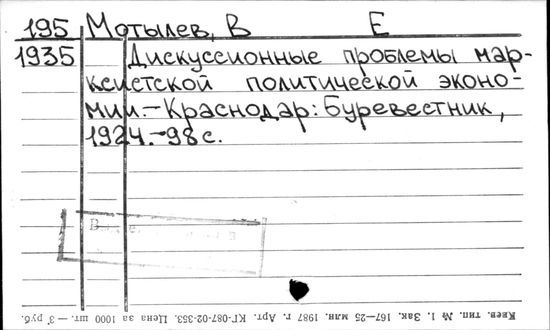 195 Мотылев, В Е
1935 Дискуссионные проблемы мар-
ксистской политической эконо-
мии.-Краснодар: Буревестник,
1924.-98с.
Киев. тип. № 1. Зак. 167—25 млн. 1987 г. Арт. КГ-087-02-353. Цена за 1000 шт. — 3 руб.